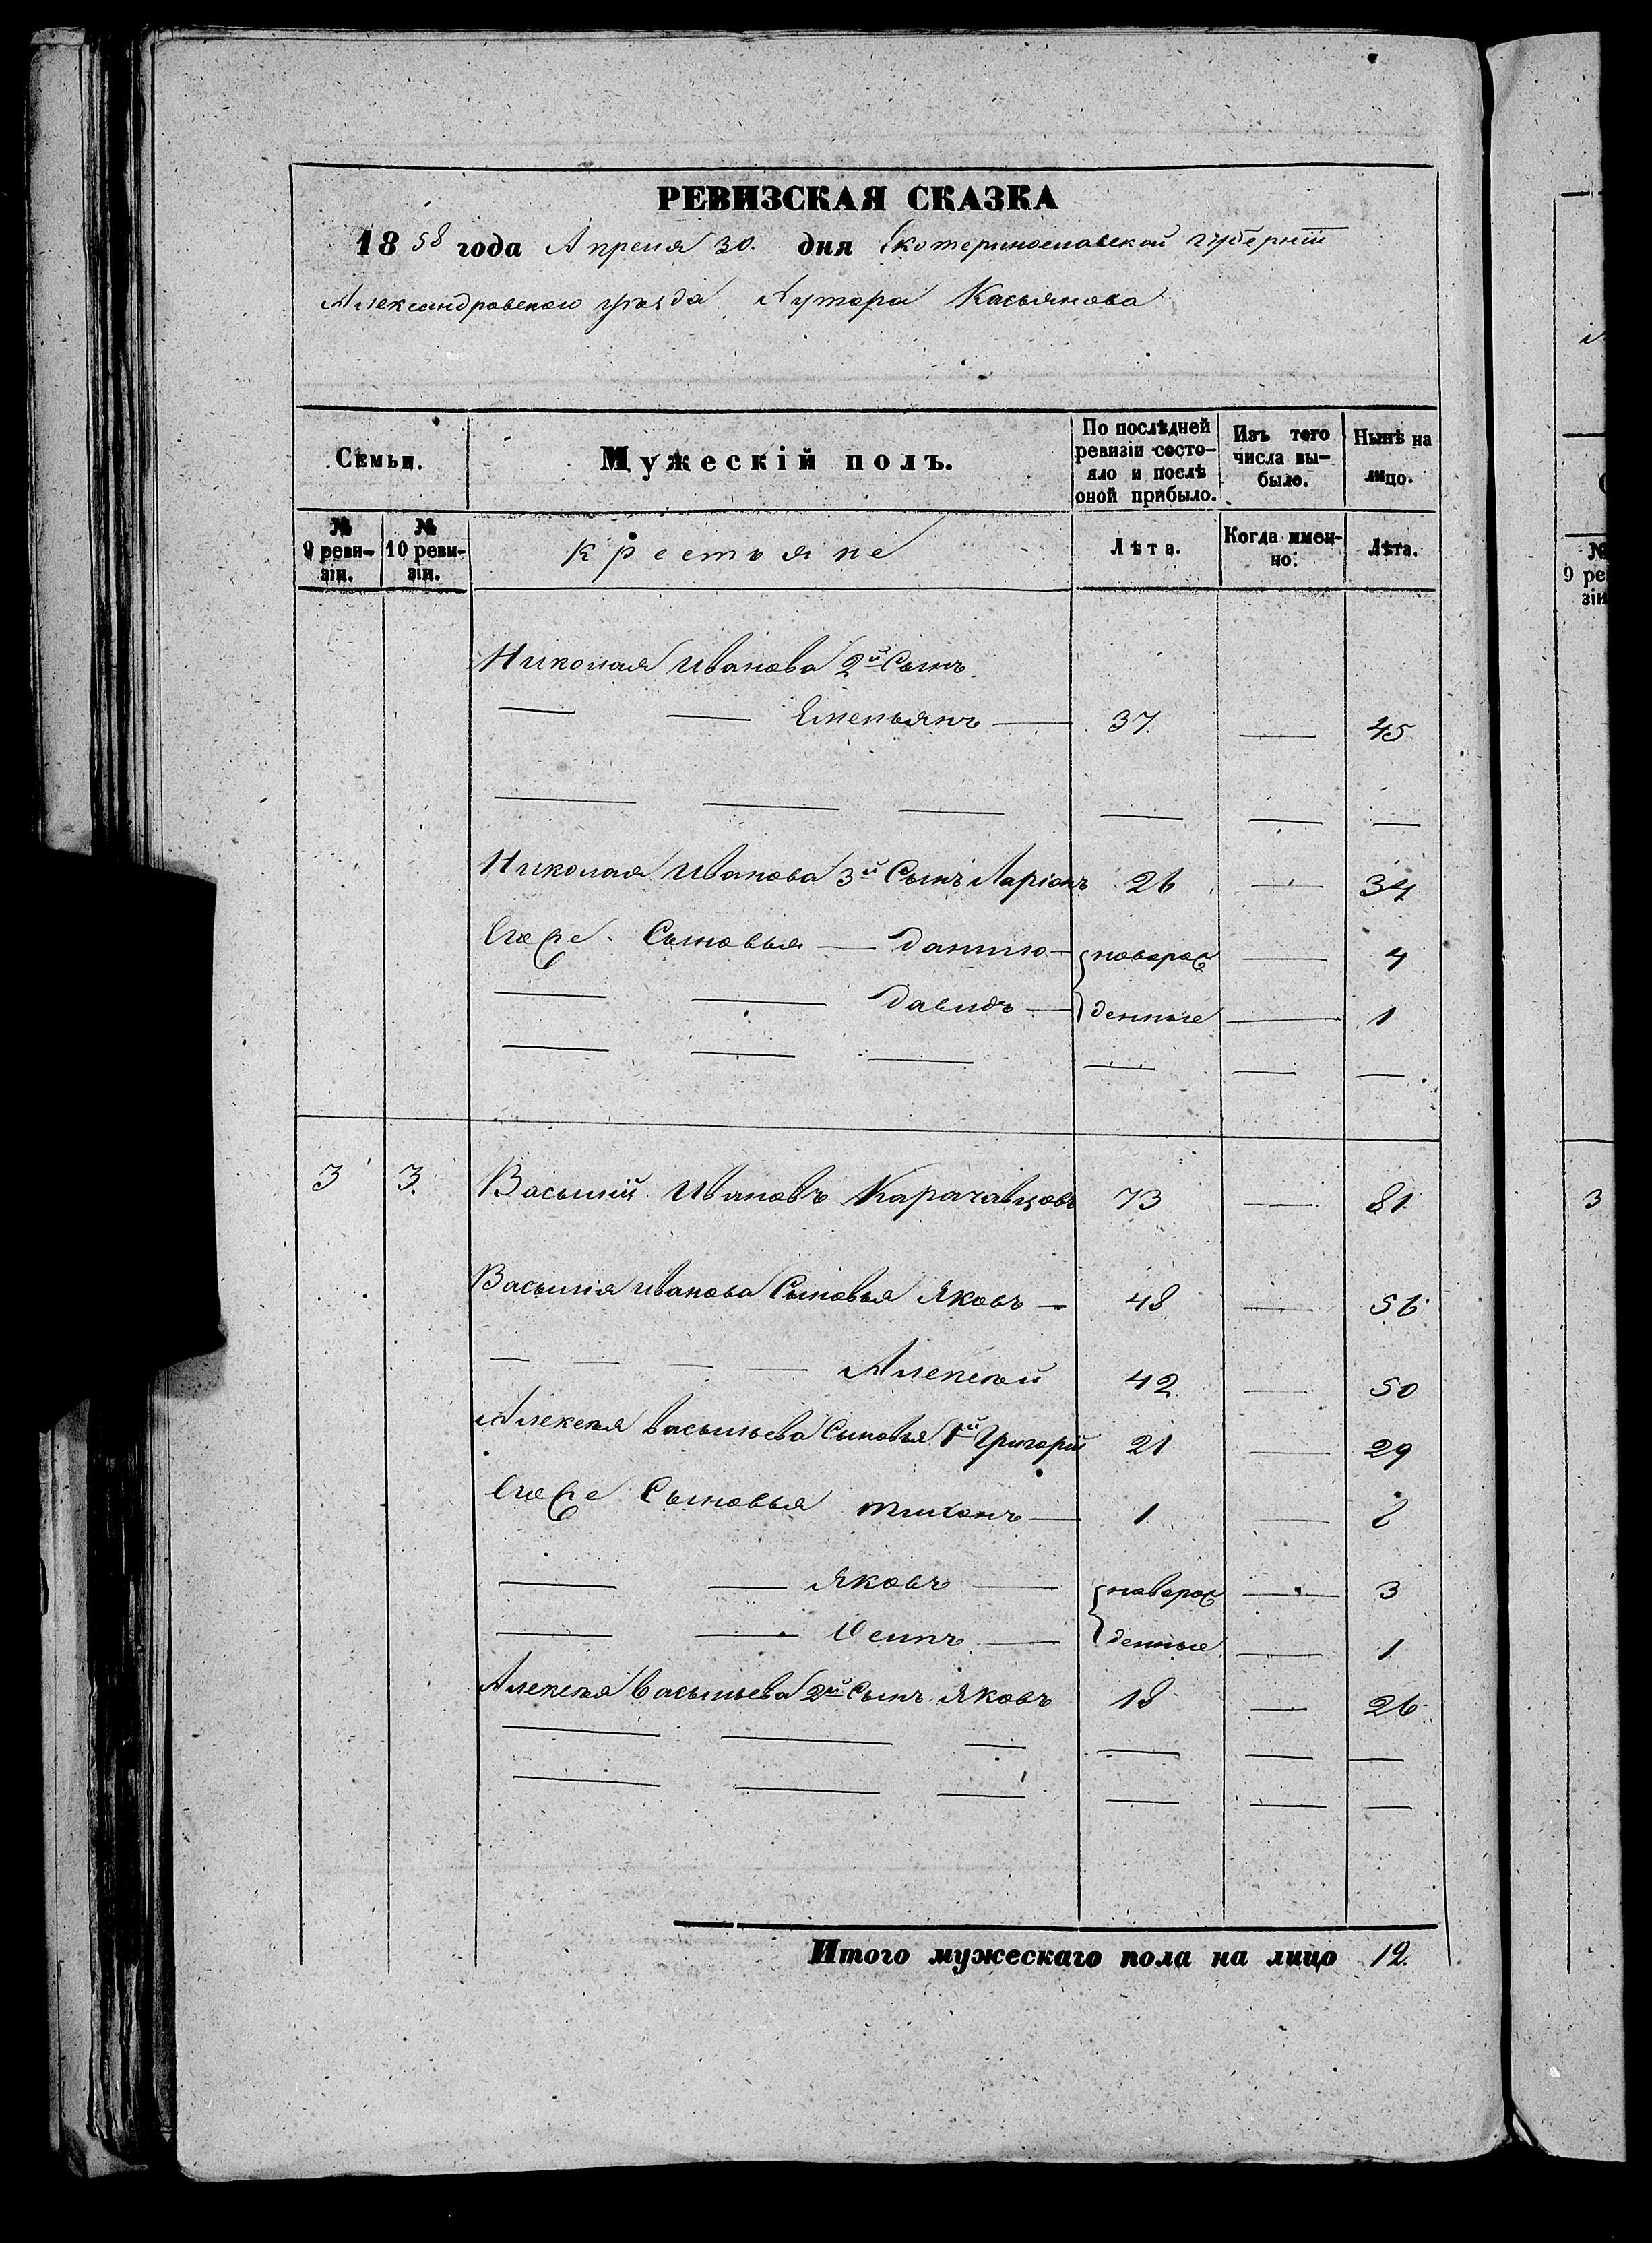 РЕВИЗСКАЯ СКАЗКА
18 58 года Апреля 30. дня Екатеринославской губерніи
Александровского уѣзда, Хутора Касьянова
Семьи.
Мужескій полъ.
По послѣдней ревизіи состояло и послѣ оной прибыло.
Изъ того числа выбыло.
Нынѣ на лицо.
№ 9 ревизіи.
№ 10 ревизіи.
Крестьяне
Лѣта.
Когда именно.
Лѣта.
Николая Иванова 2й Сынъ
— — Емельянъ — 37 — 45
— — — — — —
Николая Иванова 3й Сынъ Ларіонъ 26 — 34
Его же Сыновья — Данило — новорож — 4
— — Давидъ — денные — 1
— — — — — —
3 3. Василій Ивановъ Карачавцовъ 73 — 81
Василія Иванова Сыновья Яковъ — 48 — 56
— — — — Алексѣй 42 — 50
Алексѣя Васильева Сыновья 1й Григорій 21 — 29
Его же Сыновья Тихонъ — 1 — 8
— — Яковъ — новорож — 3
— — Осипъ — денные — 1
Алексѣя Васильева 2й Сынъ Яковъ 18 — 26
— — — — — —
— — — — — —
Итого мужескаго пола на лицо 12.
№
9 ре
зін
3